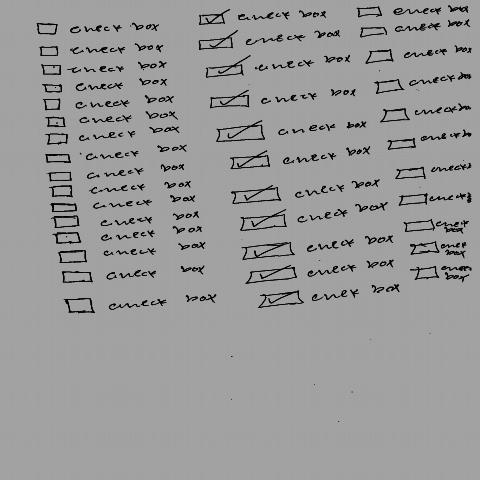 check box
check box
check box
check box
check box
check box
check box
check box
check box
check box
check box
check box
check box
check box
check box
check box
check box
check box
check box
check box
check box
check box
check box
check box
check box
check box
chek box
check box
check box
check box
check bo
check bo
check b
check
check
check
box
check
box
check
box